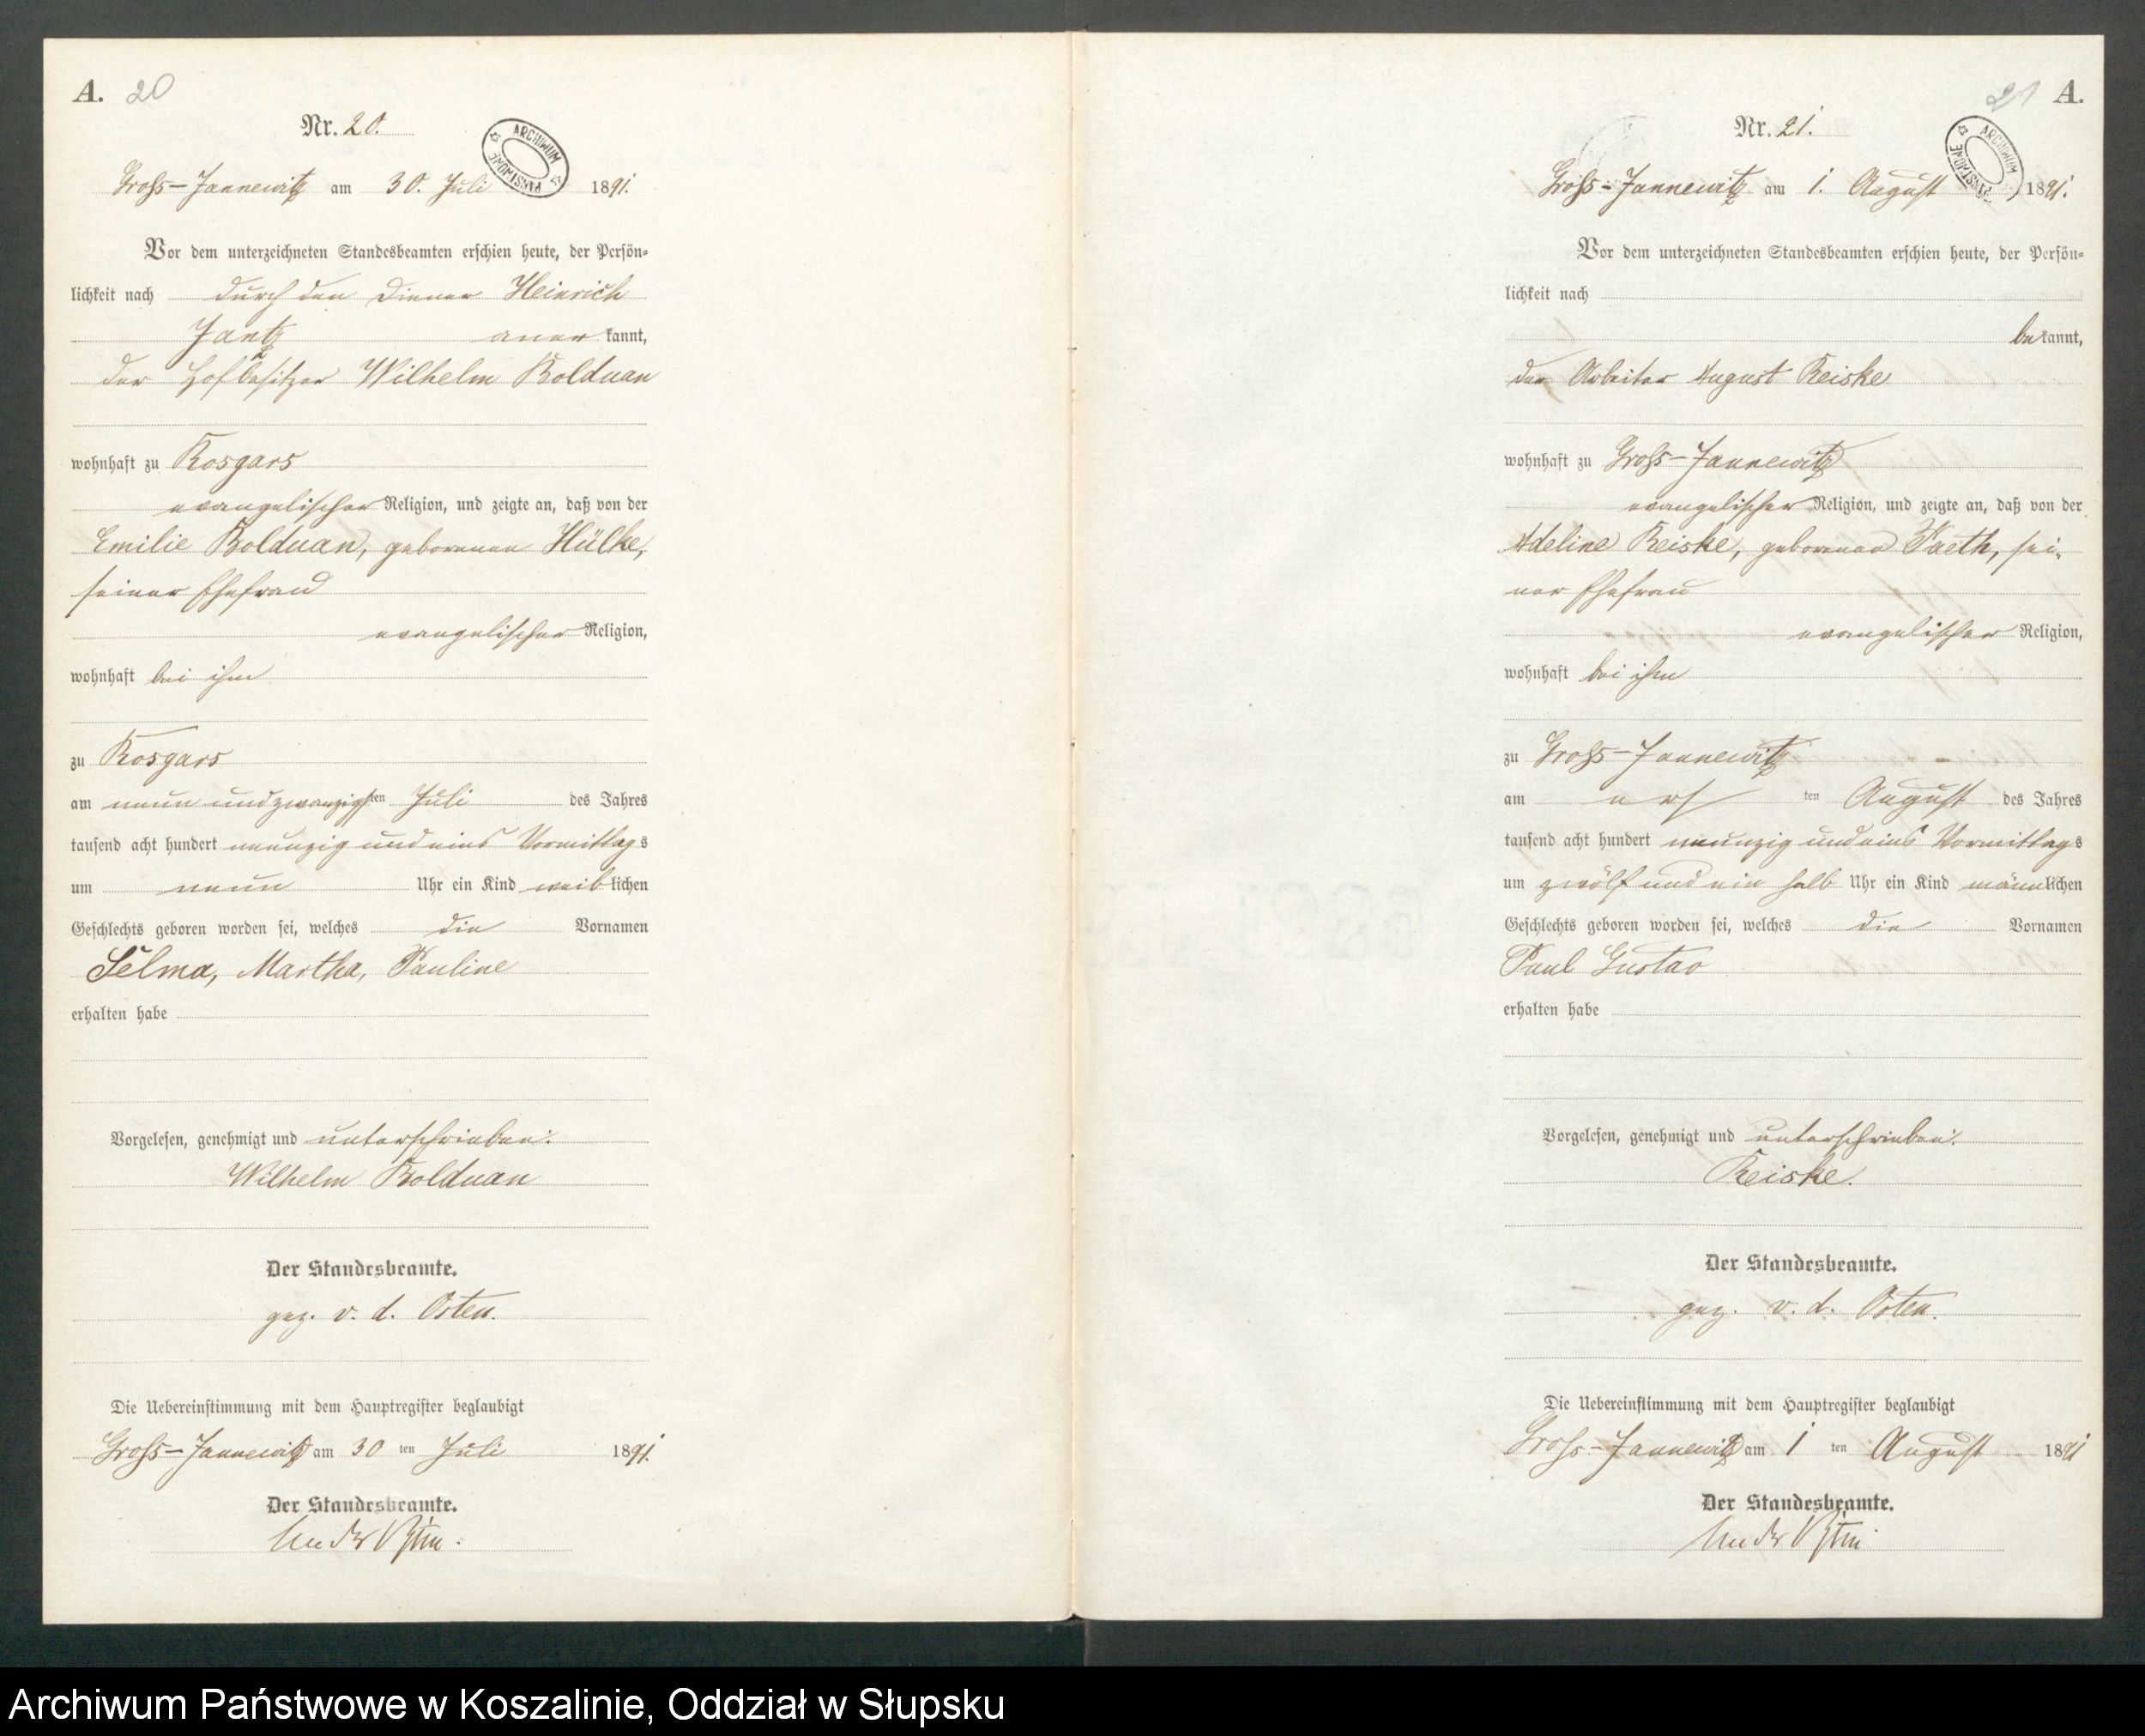 A. 20
Nr. 20.
ARCHIWUM PAŃSTWOWE
Gross-Jannewitz am 30. Juli 1891.
Vor dem unterzeichneten Standesbeamten erschien heute, der Persön-
lichkeit nach durch den Diener Heinrich
Jantz anerkannt,
der Hofbesitzer Wilhelm Bolduan
wohnhaft zu Rosgars
evangelischer Religion, und zeigte an, daß von der
Emilie Bolduan, geborenen Hülke,
seiner Ehefrau
evangelischer Religion,
wohnhaft bei ihm
zu Rosgars
am neun und zwanzigsten Juli des Jahres
tausend acht hundert neunzig und eins Vormittags
um neun Uhr ein Kind weiblichen
Geschlechts geboren worden sei, welches die Vornamen
Selma, Martha, Pauline
erhalten habe
Vorgelesen, genehmigt und unterschrieben.
Wilhelm Bolduan
Der Standesbeamte.
gez. v. d. Osten.
Die Uebereinstimmung mit dem Hauptregister beglaubigt
Gross-Jannewitz am 30 ten Juli 1891.
Der Standesbeamte.
21 A.
Nr. 21.
ARCHIWUM PAŃSTWOWE
Gross-Jannewitz am 1. August 1891.
Vor dem unterzeichneten Standesbeamten erschien heute, der Persön-
lichkeit nach
bekannt,
der Arbeiter August Reiske
wohnhaft zu Gross-Jannewitz
evangelischer Religion, und zeigte an, daß von der
Adeline Reiske, geborenen Paeth, sei-
ner Ehefrau
evangelischer Religion,
wohnhaft bei ihm
zu Gross-Jannewitz
am ers ten August des Jahres
tausend acht hundert neunzig und eins Vormittags
um zwölf und ein halb Uhr ein Kind männlichen
Geschlechts geboren worden sei, welches die Vornamen
Paul Gustav
erhalten habe
Vorgelesen, genehmigt und unterschrieben.
Reiske.
Der Standesbeamte.
gez. v. d. Osten.
Die Uebereinstimmung mit dem Hauptregister beglaubigt
Gross-Jannewitz am 1 ten August 1891
Der Standesbeamte.
Archiwum Państwowe w Koszalinie, Oddział w Słupsku